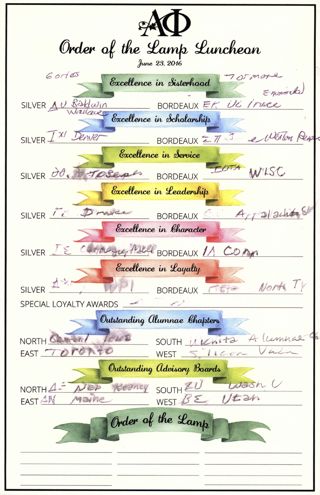 ΑΦ
Order of the Lamp Luncheon
June 23, 2016
6 or less 7 or more
Excellence in Sisterhood
SILVER ΔU Baldwin Wallace BORDEAUX EK UC Irvine
Excellence in Scholarship
SILVER Denver BORDEAUX
Excellence in Service
SILVER St Joseph's BORDEAUX IOTA WISC
Excellence in Leadership
SILVER Drake BORDEAUX Appalachian St
Excellence in Character
SILVER ΣE Carnegie Mell BORDEAUX ΙΔ Conn
Excellence in Loyalty
SILVER WPI BORDEAUX North Tx
SPECIAL LOYALTY AWARDS
Outstanding Alumnae Chapters
NORTH Central Iowa SOUTH Wichita Alumnae
EAST Toronto WEST Silicon Valle
Outstanding Advisory Boards
NORTH Neb Kearney SOUTH ZU Wash U
EAST ΔN Maine WEST BE Utah
Order of the Lamp